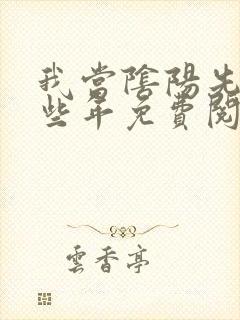 我當陰陽先
些年免費閱
雲香亭